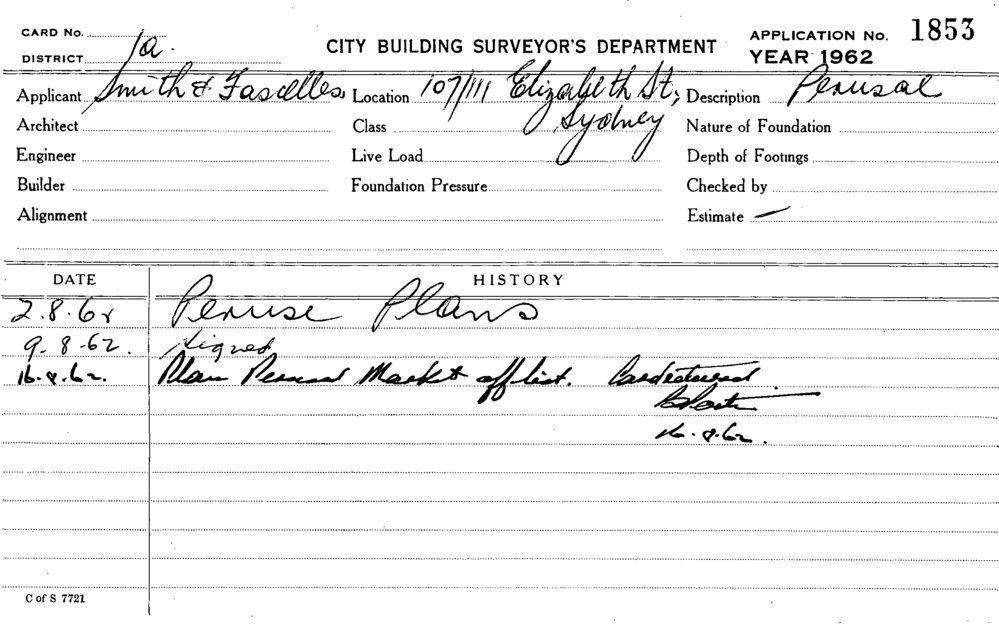 CARD No.
DISTRICT 1a.
CITY BUILDING SURVEYOR'S DEPARTMENT
APPLICATION No. 1853
YEAR 1962
Applicant Smith & Location 107/111 Elizabeth St, Description Perusal
Architect Class Sydney Nature of Foundation
Engineer Live Load Depth of Footings
Builder Foundation Pressure Checked by
Alignment Estimate —
DATE HISTORY
2.8.62 Peruse Plans
9-8-62. signed
16.8.62. Plan Perused Market off list. Card returned
16.8.62.
C of S 7721